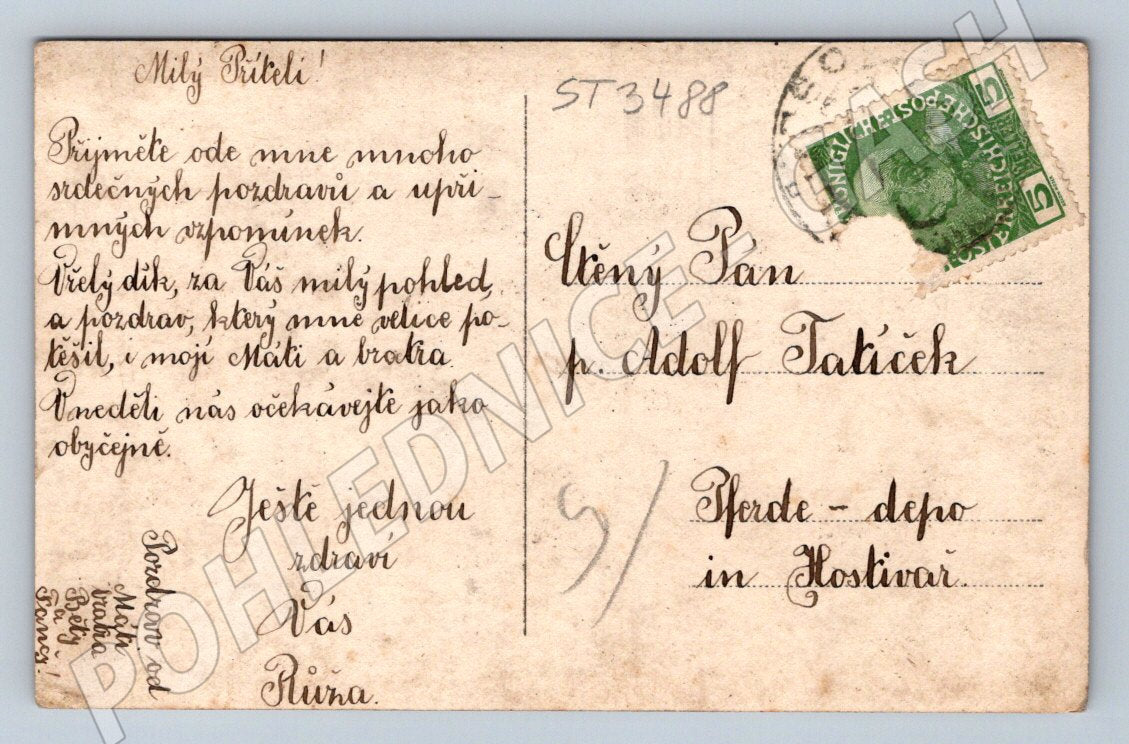 Milý Příteli!
Přijměte ode mne mnoho
srdečných pozdravů a upří-
mných vzpomínek.
Vřelý dík, za Váš milý pohled,
a pozdrav, který mne velice po-
těšil, i mojí Máti a bratra.
V neděli nás očekávejte jako
obyčejně.
Ještě jednou
zdraví
Vás
Růža.
Pozdrav od
Máti
bratra
Běty
Fa
ST 3488
Ctěný Pán
p. Adolf Tatíček
Pferde - depo
in Hostivař.
5 5
POHLEDNICE - CASH